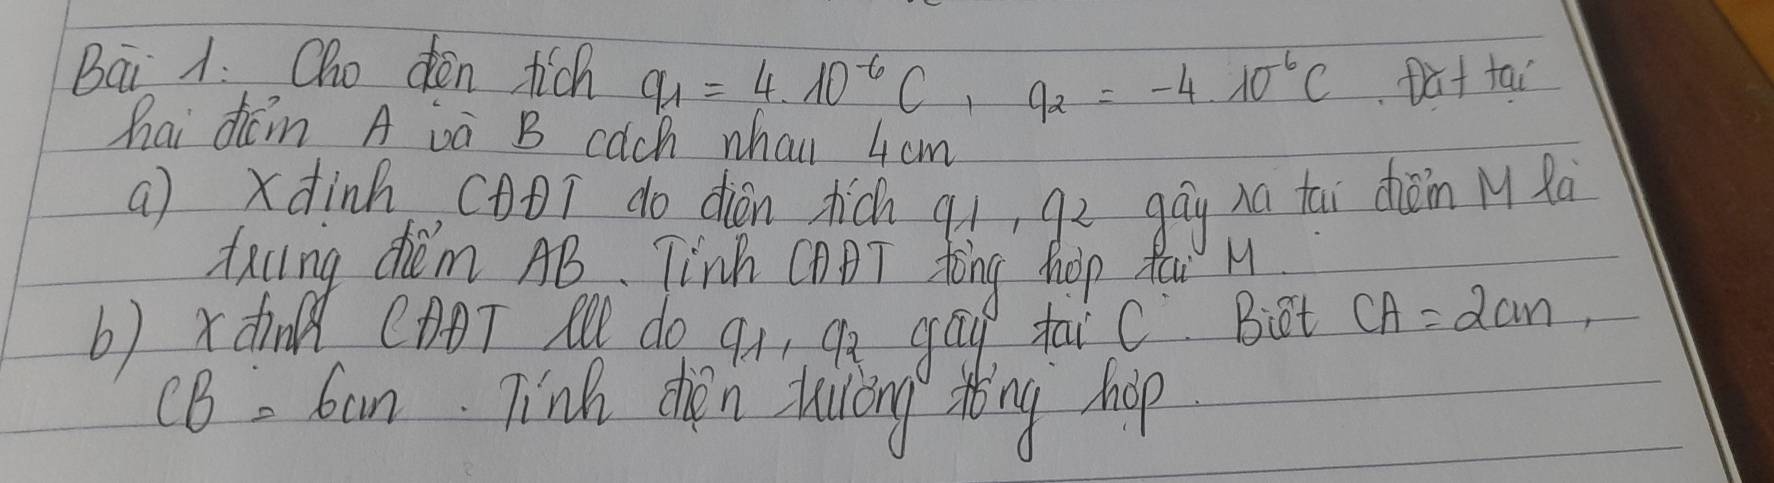 Bài 1: Cho điện tích q1 = 4. 10⁻⁶ C, q2 = -4. 10⁻⁶ C. Đặt tại
hai điểm A và B cách nhau 4cm
a) xđịnh CĐĐT do điện tích q1, q2 gây ra tại điểm M là
trung điểm AB. Tính CĐĐT tổng hợp tại M.
b) xđịnh CĐĐT do q1, q2 gây tại C. Biết CA = 2cm,
CB = 6cm. Tính điện trường tổng hợp.